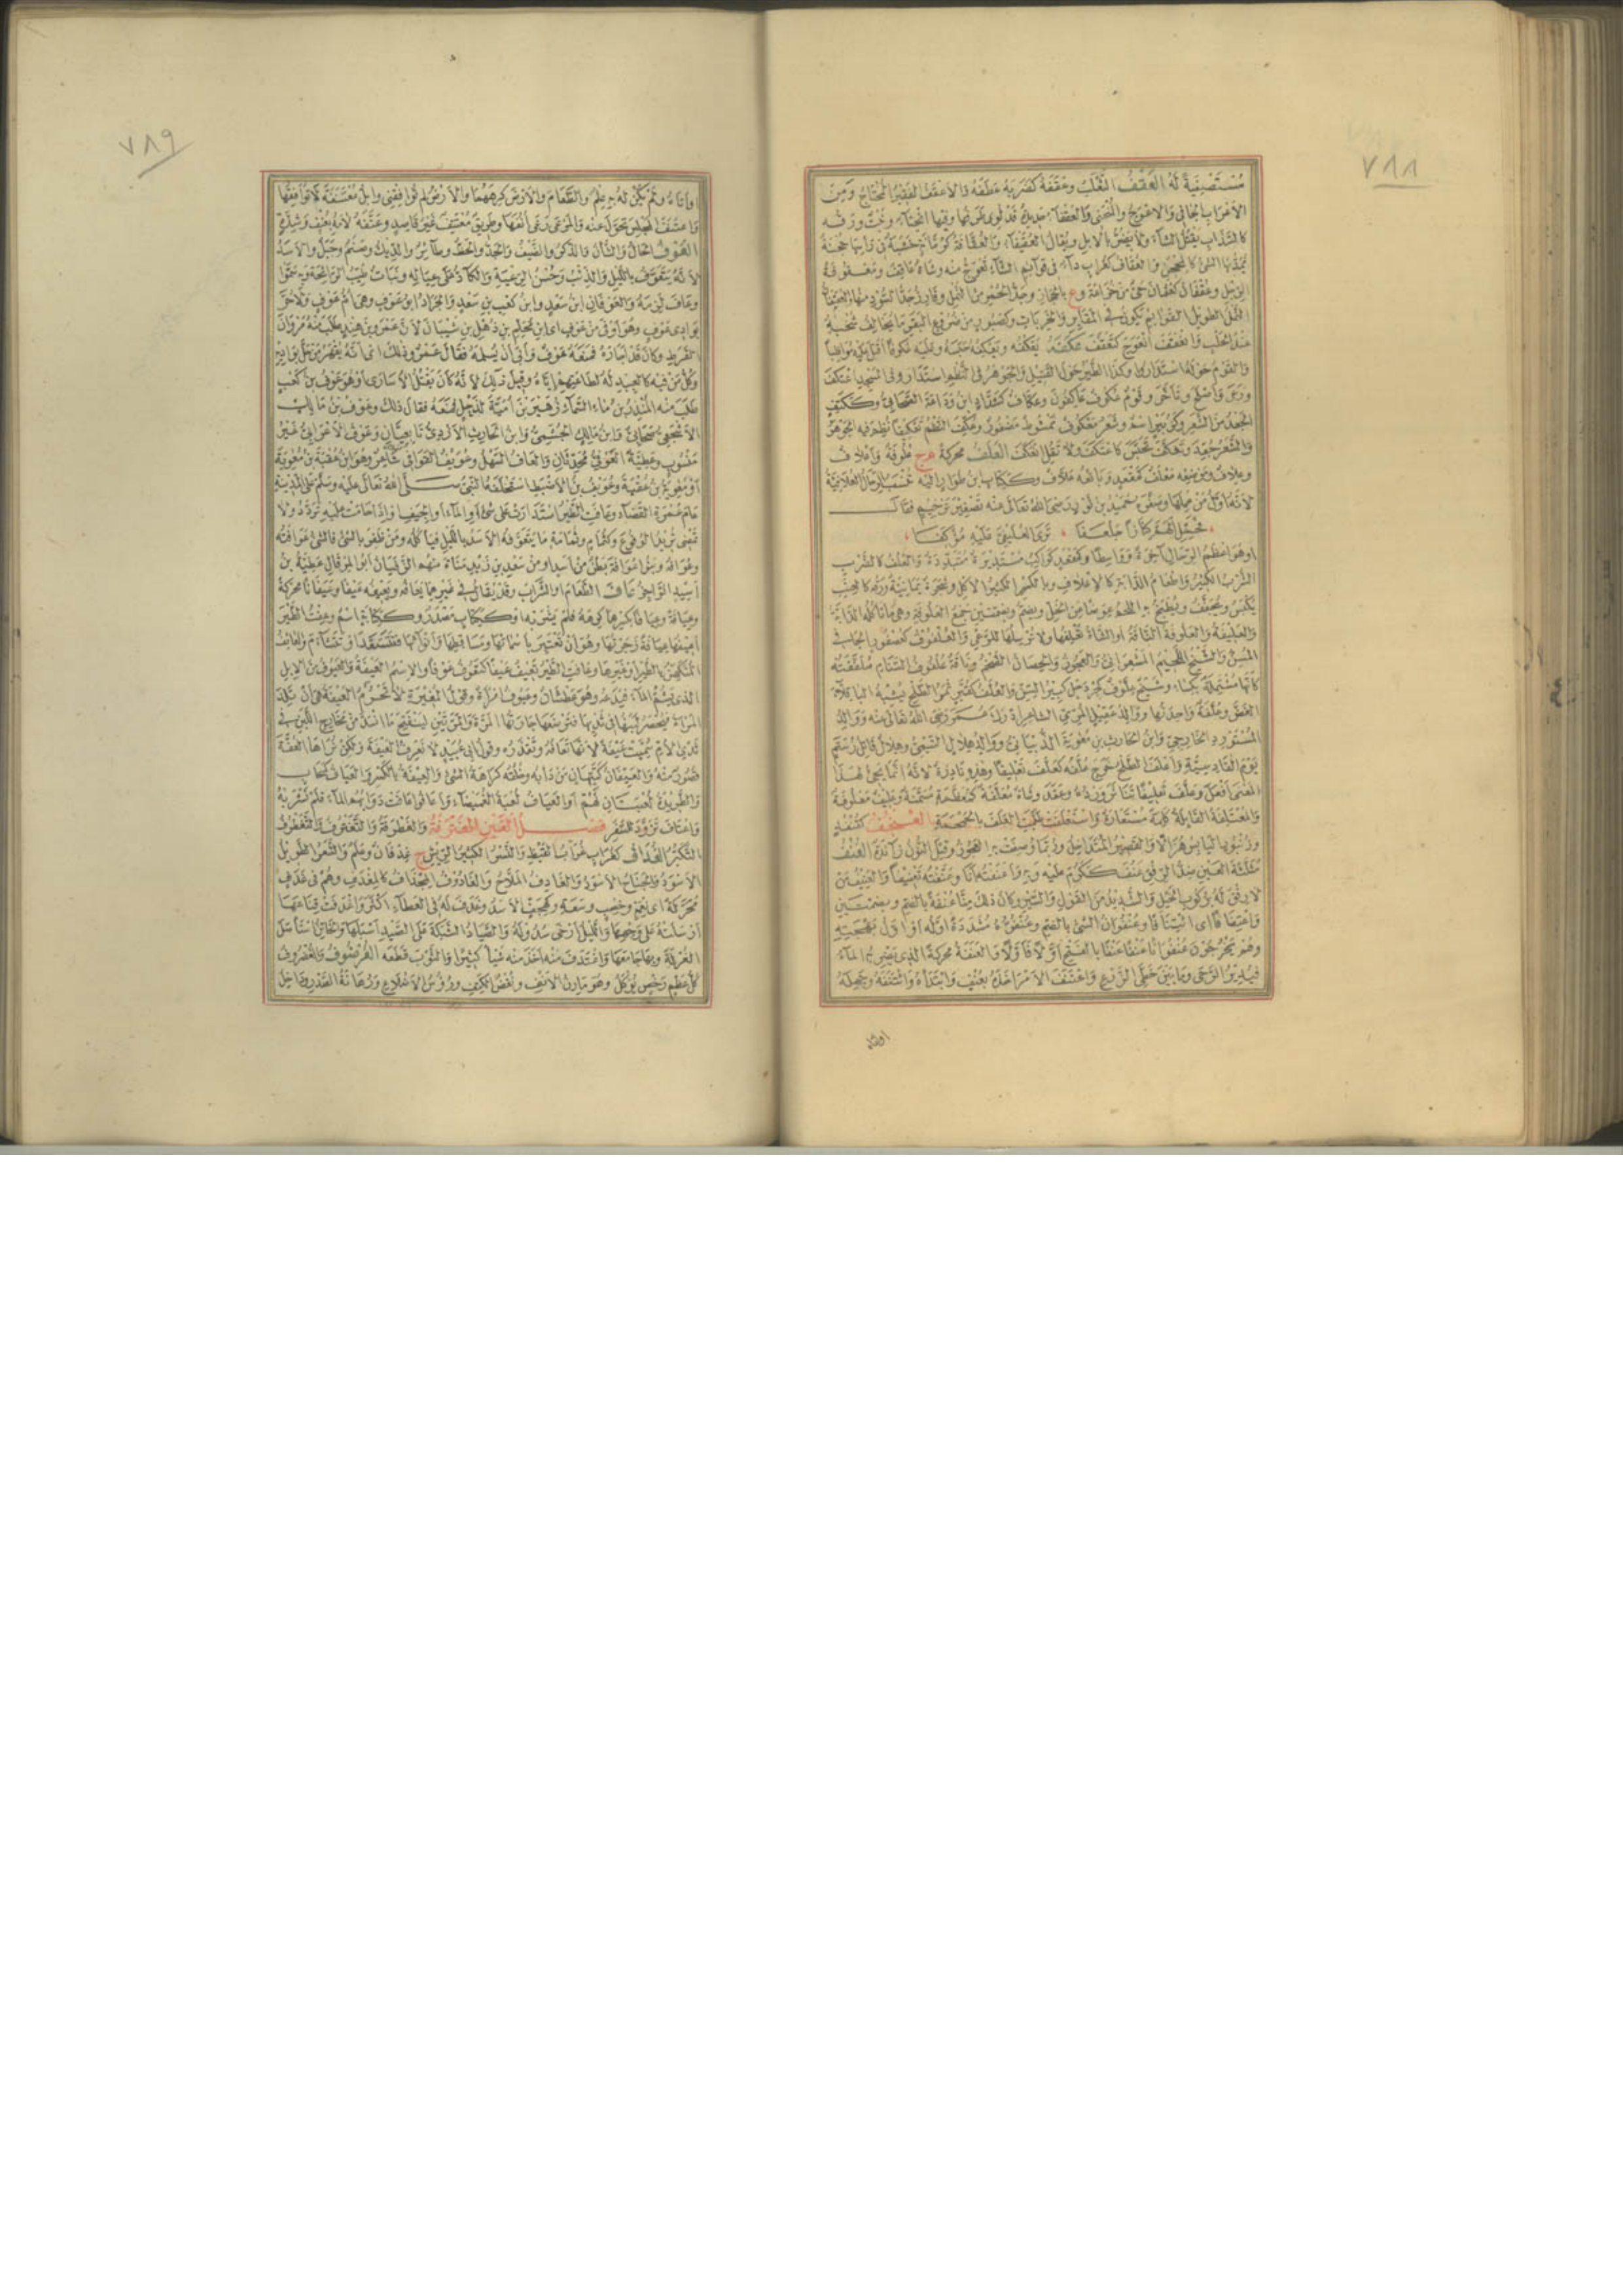 ٧٨٨
مستصفية له العقف الثعلب وعقفه كضربه عطفه والاعقف الفقير المحتاج ومن
الاعراب الجافى والاعوج والمنحنى والعقفاء حديدة قد لوى طرفها وفيها انحناء ونبت ورقه
كالسذاب يقتل الشاء ولا يضر بالابل ويقال العقيفاء والعقافة كرمانة خشبة فى راسها حجنة
يمد بها الشئ كالمحجن والعقاف كغراب داء فى قوائم الشاء تعوج منه وشاة عاقف ومعقوفة
الرجل وعقفان كعثمان حى من خزاعة وع بالحجاز وجد الحمر من النمل وفازر جد السود منها والعيقفان
النمل الطويل القوائم تكون فى المقابر والخربات
عند الحلب وانعقف انعوج كتعقف عكفه يعكفه ويعكفه حبسه وعليه عكوفا اقبل عليه مواظبا
والقوم حوله استداروا وكذا الطير حول القتيل والجوهر فى النظم استدار وفى المسجد اعتكف
ورعى واصلح وتأخر وقوم عكوف عاكفون وعكاف كشداد ابن وداعة الصحابى وككتف
الجعد من الشعر وكزبير اسم وشعر معكوف ممشوط مضفور وعكف النظم تعكيفا نظم فيه الجوهر
والشعر جعد وتعكف تحبس كاعتكف ولا تقل انعكف العلف محركة م ج علوفة واعلاف
وعلاف وموضعه معلف كمقعد وبائعه علاف وككتاب ابن طوار اليه تنسب الرحال العلافية
لانه اول من عملها وصغره حميد بن ثور رضى الله تعالى عنه تصغير ترخيم فقال
فحمل الهم كنازا جلعفا ٭ ترى العليفى عليه مؤكفا
او هو اعظم الرحال آخرة وواسطا وكمقعد كواكب مستديرة متبددة والعلف كالضرب
الشرب الكثير واطعام الدابة كالاعلاف وبالكسر الكثير الاكل وشجرة يمانية ورقه كالعنب
يكبس ويجفف ويطبخ به اللحم عوضا من الخل ويضم وبضمتين جمع العلوفة وهى ما تأكله الدابة
والعليفة والعلوفة الناقة او الشاة تعلفها ولا ترسلها للرعى والعلفوف كعصفور الجافى
المسن والشيخ اللحيم المشعرانى والعجوز والحصان الضخم وناقة علفوف السنام ملففته
كأنها مشتملة بكساء وشيخ علوف كجردحل كبير السن والعلف كقبر ثمر الطلح يشبه الباقلاء
الغض وعلفة واحدتها ووالد عقيل المرى الشاعر ادرك عمر رضى الله تعالى عنه ووالد
المستورد الخارجى وابن الحارث بن معوية الذبيانى ووالد هلال التيمى وهلال قاتل رستم
يوم القادسية واعلف الطلح خرج علفه كعلف تعليفا وهذه نادرة لانه انما يجئ لهذا
المعنى افعل وعلف تعليفا تناثر ورده وعقد وشاة معلفة كمعظمة مسمنة وظيف معلوفة
والمعتلفة القابلة كلمة مستعارة واستعلفت طلبت العلف بالحمحمة العنجف كقنفذ
وزنبور اليابس هزالا والقصير المتداخل وربما وصفت به العجوز وقيل النون زائدة العنف
مثلثة العين ضد الرفق عنف ككرم عليه وبه واعنفته انا وعنفته تعنيفا والعنيف من
لا رفق له بركوب الخيل والشديد من القول والسير وكان ذلك منا عنفة بالضم وبضمتين
واعتنافا اى ائتنافا وعنفوان الشئ بالضم وعنفوه مشددة اوله او اول بهجته
وهم يخرجون عنفوانا عنفا عنفا بالفتح اولا فاولا والعنفة محركة الذى يضربه الماء
فيدير الرحى وما بين خطى الزرع واعتنف الامر اخذه بعنف وابتدأه وائتنفه وجهله
او اتاه
٧٨٩
او اتاه ولم يكن له به علم والطعام والارض كرههما والارض لم توافقنى وابل معتنفة لا توافقها
واعتنف المجلس تحول عنه والمرعى رعى انفها وطريق معتنف غير قاصد وعنفه لامه بعنف وشدة
العوف الحال والشأن والذكر والضيف والجد والحظ وطائر والديك وصنم وجبل والاسد
لانه يتعوف بالليل والذئب وحسن الرعية والكاد على عياله ونبات طيب الرائحة وبه سموا
وعاف لزمه والعوفان ابن سعد وابن كعب بن سعد والجراد ابو عوف وهى ام عوف ولا حر
بوادى عوف وهو اوفى من عوف اى ابن محلم بن ذهل بن شيبان لان عمرو بن هند طلب منه مروان
القرظ وكان قد اجاره فمنعه عوف وابى ان يسلمه فقال عمرو ذلك اى انه يقهر من حل بواديه
وكل من فيه كالعبيد له لطاعتهم اياه وقيل ذلك لانه كان يقتل الاسارى او هو عوف بن كعب
طلب منه المنذر بن ماء السماء زهير بن امية لذحل فمنعه فقال ذلك وعوف بن مالك
الاشجعى صحابى وابن مالك الجشمى وابن الحارث الازدى تابعيان وعوف الاعرابى غير
منسوب وعطية العوفى محدثان والعاف السهل وعويف القوافى شاعر وهو ابن عقبة بن معوية
او معوية بن عقبة وعويف بن الاضبط استخلفه النبى صلى الله تعالى عليه وسلم على المدينة
عام عمرة القضاء وعافت الطير استدارت على شئ او الماء او الجيف او اذا حامت عليه تردد ولا
تمضى تريد الوقوع وكثمام وثمامة ما يتعوفه الاسد بالليل فيأكله ومن ظفر بالشئ فالشئ عوافته
وعوافه وبنو عوافة بطن من اسد او من سعد بن زيد مناة منهم الزفيان ابو المرقال عطية بن
اسيد الراجز عاف الطعام او الشراب وقد يقال فى غيرهما يعافه ويعيفه عيفا وعيفانا محركة
وعيافة وعيافا بكسرهما كرهه فلم يشربه او ككتاب مصدر وككتابة اسم وعفت الطير
اعيفها عيافة زجرتها وهو ان تعتبر باسمائها ومساقطها وانوائها فتتسعد او تتشاءم والعائف
المتكهن بالطير او غيرها وعافت الطير تعيف عيفا كتعوف عوفا والاسم العيفة والعيوف من الابل
الذى يشم الماء فيدعه وهو عطشان وعيوف امرأة وقول المغيرة لا تحرم العيفة هى ان تلد
المرأة فيحصر لبنها فى ثديها فترضعها جارتها المرة والمرتين لينفتح ما انسد من مخارج اللبن فى
ثدى الام سميت عيفة لانها تعافه وتقذره وقول ابى عبيد لا نعرف العيفة ولكن نراها العفة
قصور منه والعيفان كتيهان من دابه وخلقه كراهة الشئ والعيفة بالكسر والعياف كسحاب
والطريدة لعبتان لهم او العياف لعبة الغميصاء واعافوا عافت دوابهم الماء فلم تشربه
واعتاف تزود للسفر فصل الغين المعترفة والغطرفة والتغترف والتغطرف
التكبر الغداف كغراب غراب القيظ والنسر الكثير الريش ج غدفان وعلم والشعر الطويل
الاسود والجناح الاسود والغادف الملاح والغادوف المجداف كالمغدف وهم فى غدف
محركة اى نعم وخصب وسعة وكهجف الاسد وغدف له فى العطاء اكثر واغدفت قناعها
ارسلته على وجهها والليل ارخى سدوله والصياد الشبكة على الصيد اسبلها والخاتن استأصل
الغرلة وبها جامعها واغتدف منه اخذ منه شيأ كثيرا والثوب قطعه الغرضوف والغضروف
كل عظم رخص يؤكل وهو مارن الانف ونغض الكتف ورؤس الاضلاع ورهابة الصدر وداخل